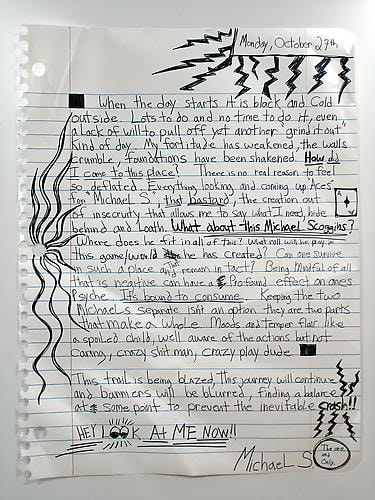 Monday, October 27th
When the day starts it is black and Cold
outside. Lots to do and no time to do it, even
a Lack of will to pull off yet another "grind it out"
kind of day. My fortitude has weakened, the walls
crumble, foundations have been shakened. How did
I come to this place? There is no real reason to feel
so deflated. Everything looking and coming up Aces
for "Michael S", that bastard, the creation out
of insecurity that allows me to say what I need, hide
behind and Loath. What about this Michael Scoggins?
Where does he fit in all of this? What roll will he play in
this game/world he has created? Can one survive
in such a place and remain in tact? Being Mindful of all
that
that is negative can have a Profound effect on ones
Psyche. It's bound to consume. Keeping the two
Michaels separate isnt an option they are two parts
that make a whole. Moods and Temper flair like
a spoiled child, well aware of the actions but not
Caring, crazy shit man, crazy play dude.
This trail is being blazed, this journey will continue
and banners will be blurred, finding a balance
at some point to prevent the inevitable crash!!
HEY LOOK AT ME NOW!!
Michael S.
The one
and
Only.
A
A